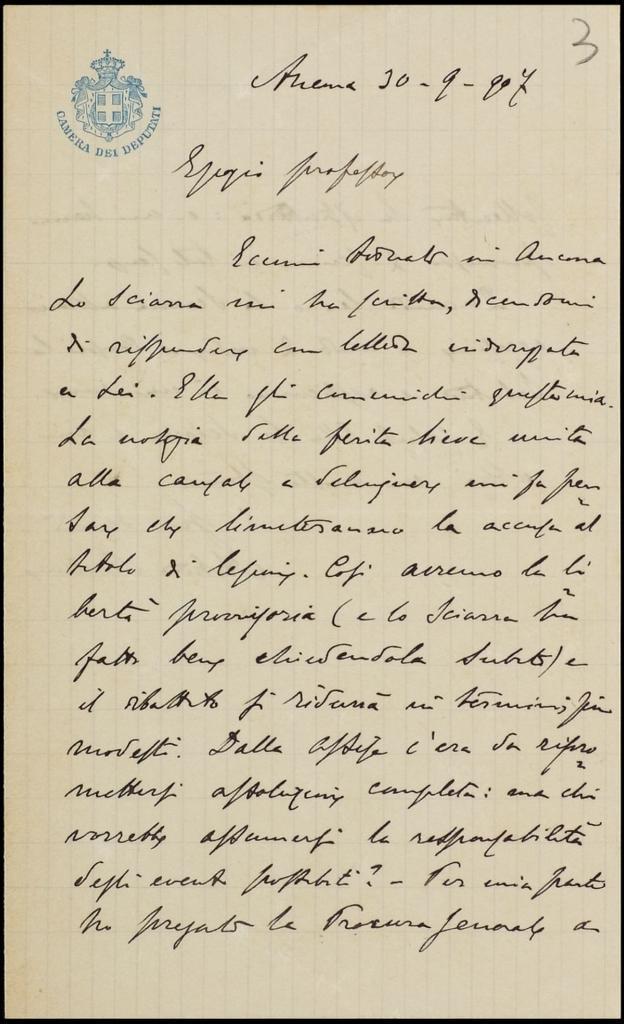 3
CAMERA DEI DEPUTATI
Ancona 30-9-907
Egregio professore
Eccomi tornato in Ancona
Lo Sciarra mi ha scritto, dicendomi
di rispondere con lettera indirizzata
a Lei. Ella gli comunichi questa mia.
La notizia della ferita lieve unita
alla causale a delinquere mi fa pen
sare che limiteranno la accusa al
titolo di lesioni. Così avremo la li
bertà provvisoria (e lo Sciarra ha
fatto bene chiedendola subito) e
il dibattito si ridurrà in termini più
modesti. Dalla Assise c'era da ripro
mettersi assoluzione completa: ma chi
vorrebbe assumersi la responsabilità
degli eventi possibili? - Per mia parte
ho pregato la Procura Generale a